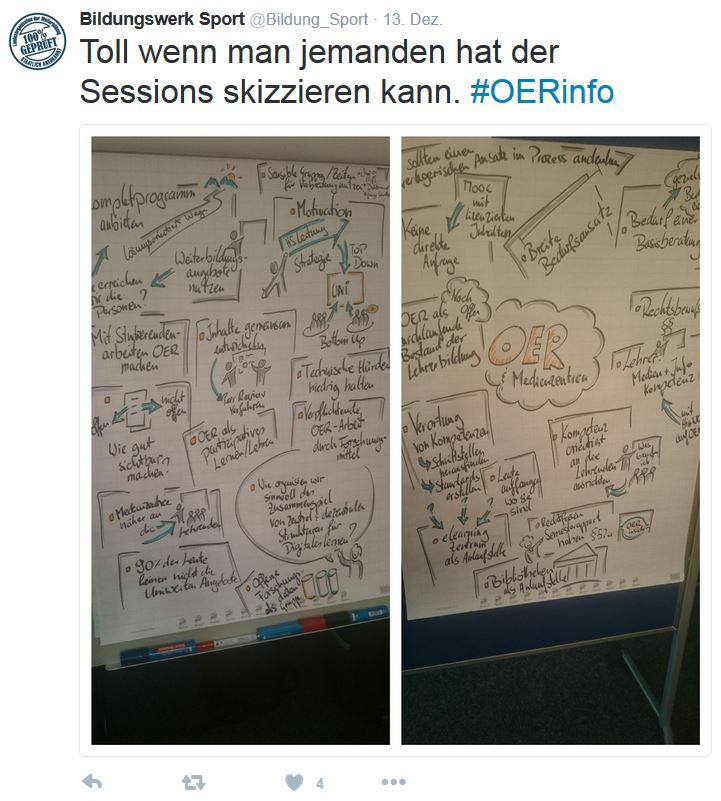 Bildungswerk Sport @Bildung_Sport · 13. Dez.
100%
GEPRÜFT
Toll wenn man jemanden hat der
Sessions skizzieren kann. #OERinfo
ompletprogramm
anbieten
Lösungsorientierte Wege
Sensible Gruppen/Zeiten
Motivation
HS Leitung
Strategie
TOP
Down
Uni
Bottom up
Weiterbildungs-
angebote
nutzen
erreichen
die
Personen?
Mit Studierenden-
arbeiten OER
machen
Inhalte gemeinsam
entwickeln
Peer Review
Verfahren
Technische Hürden
niedrig halten
offen
nicht
offen
Wie gut
sichtbar
machen?
OER als
Partizipatives
Lernen/Lehren
Verpflichtende
OER-Arbeit
durch Forschungs-
mittel
Medienzentren
näher an
die
Lehrenden
Wie organisieren wir
sinnvoll das
Zusammenspiel
von zentral/dezentralen
Strukturen für
Digitales Lernen?
90% der Leute
kennen nicht die
Uniweiten Angebote
Offene
Forschung
als
Gruppe
sollten einen
verlegerischen Ansatz im Prozess andenken
MOOC
mit
lizenzierten
Inhalten
Keine
direkte
Anfrage
Breite
Bedarfsansatz
Bedarf einer
Basisberatung
Noch
offen
OER als
Bestand der
Lehrerbildung
OER
Medienzentren
Rechtsbewuss
Lehrer:
Medien + Info
Kompetenz
Verortung
von Kompetenzen
Schnittstellen
herausfinden
Standards
erstellen
Leute
auffangen
wo sie
sind
Kompetenz
orientiert
an die
Lehrenden
ausrichten
Was
brauch
ich
eLearning
zentrum
als Anlaufstelle
Semesterapport
haben §52a
OER
Bibliotheken
als Anlaufstelle
4